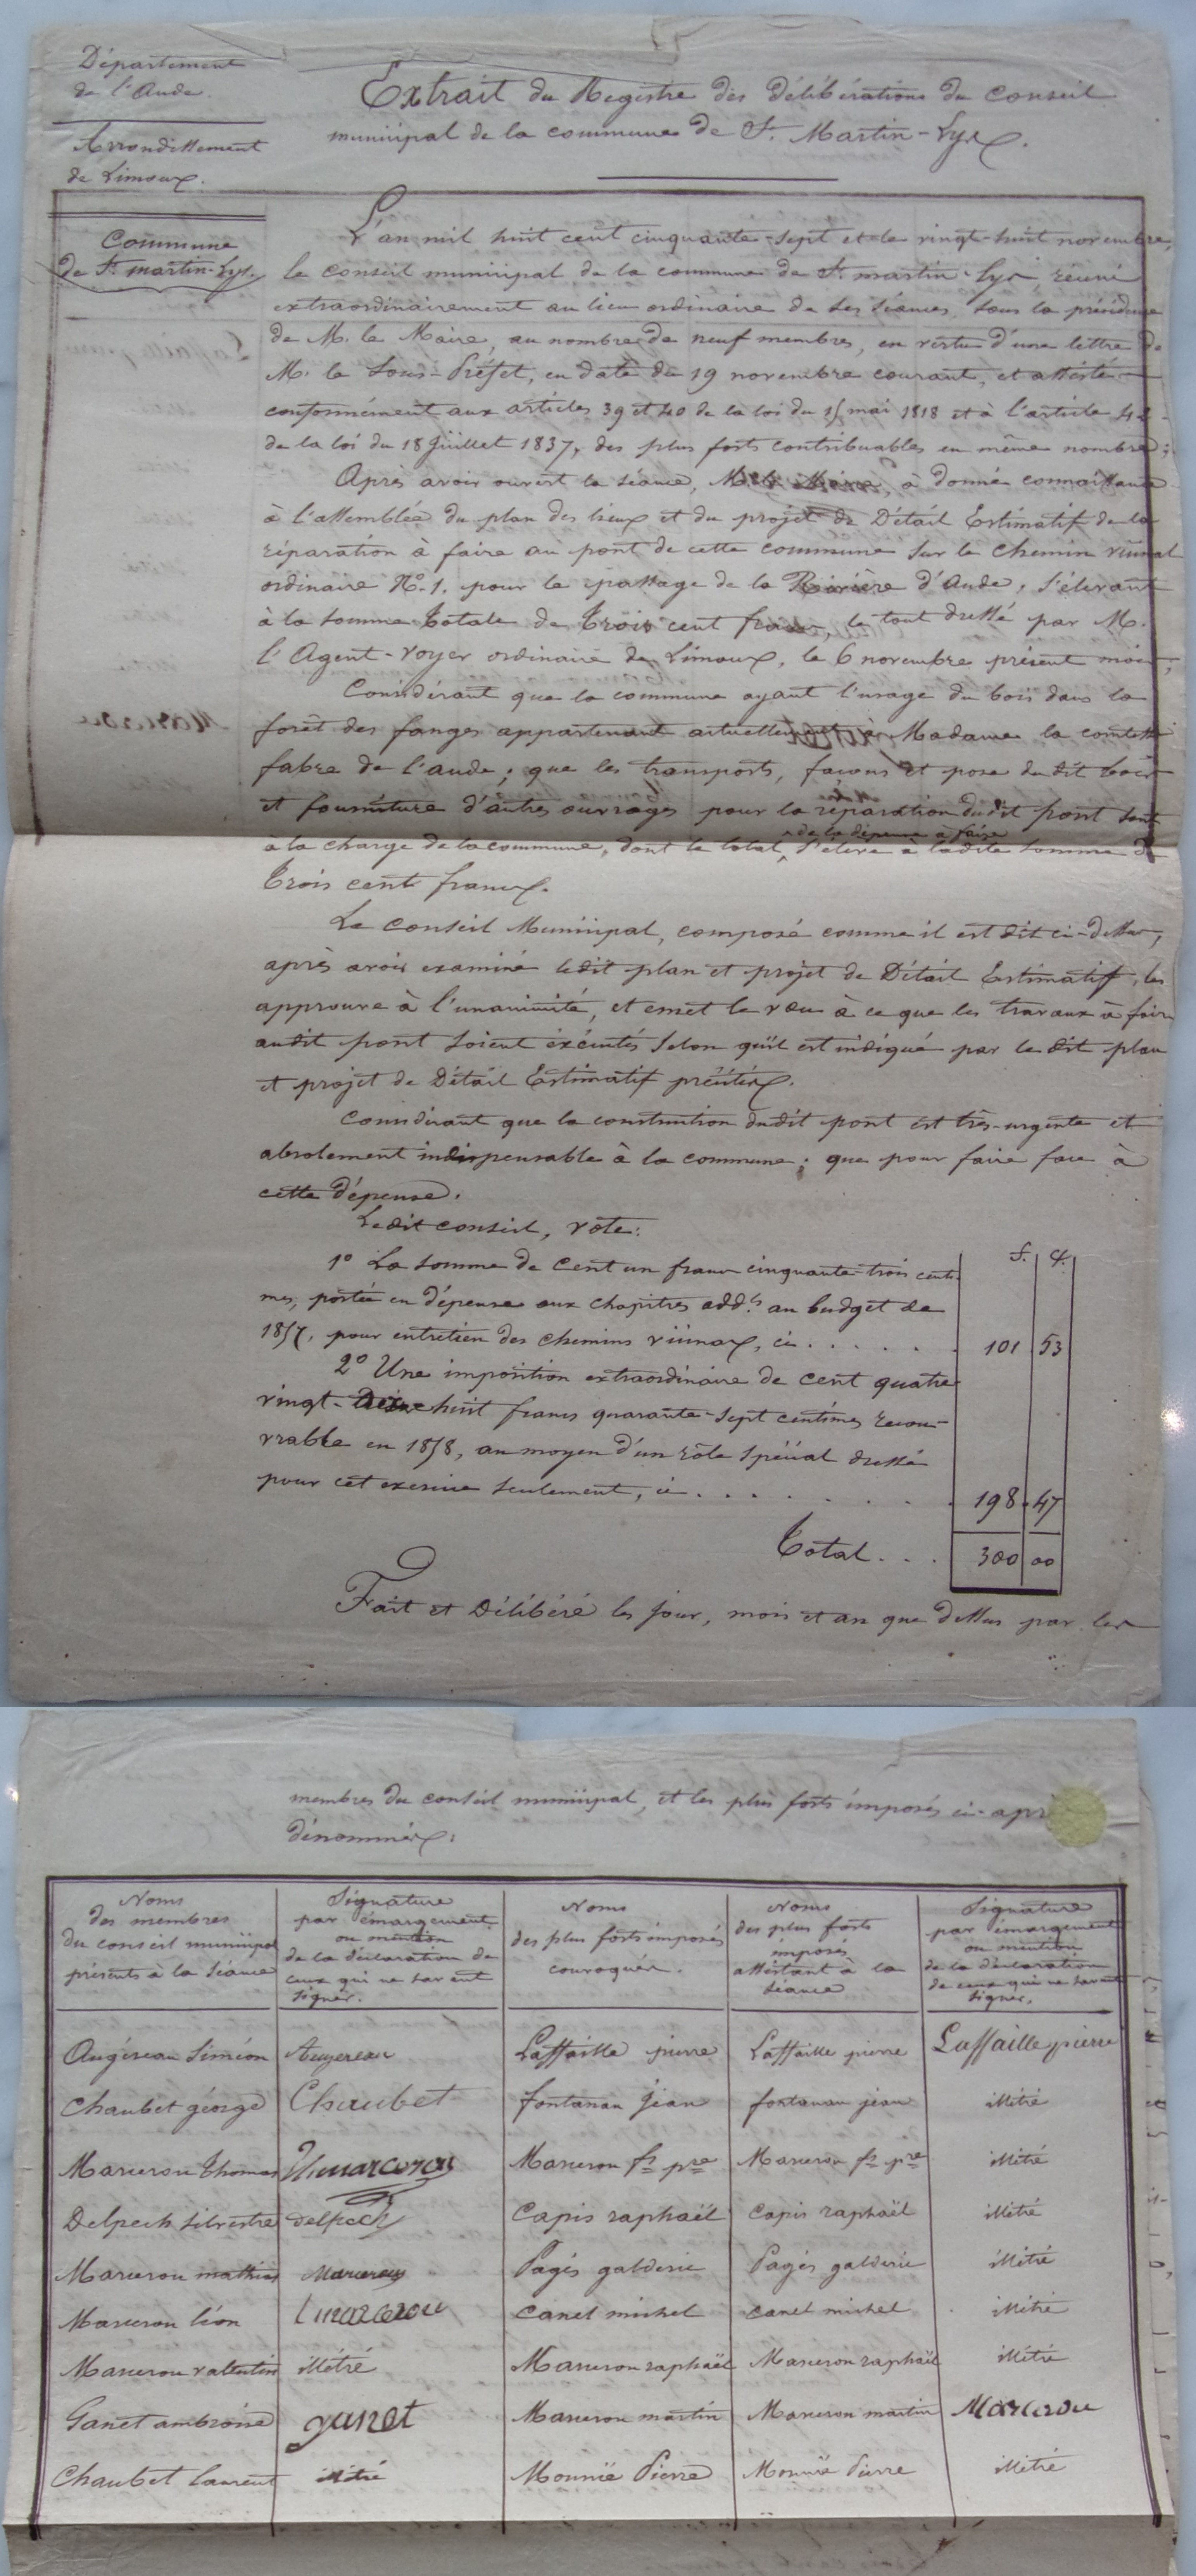 Département
de l'Aude.
Arrondissement
de Limoux.
Commune
de St. martin-Lys.
Extrait du Registre des délibérations du conseil
municipal de la commune de St. Martin-Lys.
L'an mil huit cent cinquante-sept et le vingt-huit novembre,
le conseil municipal de la commune de St. martin-Lys, réuni
extraordinairement au lieu ordinaire de ses séances, sous la présidence
de M. le Maire, au nombre de neuf membres, en vertu d'une lettre de
M. le Sous-Préfet, en date du 19 novembre courant, et assisté
conformément aux articles 39 et 40 de la loi du 15 mai 1818 et à l'article 42
de la loi du 18 Juillet 1837, des plus forts contribuables en même nombre;
Après avoir ouvert la séance, M. le Maire, a donné connaissance
à l'assemblée du plan des lieux et du projet de Détail Estimatif de la
réparation à faire au pont de cette commune sur le chemin vicinal
ordinaire No. 1. pour le passage de la Rivière d'Aude, s'élevant
à la somme totale de Trois cent francs, le tout dressé par M.
l'Agent-voyer ordinaire de Limoux, le 6 novembre présent mois;
Considérant que la commune ayant l'usage du bois dans la
forêt des fanges appartenant actuellement à Madame la comtesse
fabre de l'aude; que les transports, façons et pose dudit bois
et fourniture d'autres ouvrages pour la réparation dudit pont sont
à la charge de la commune, dont le total de la dépense à faire s'élève à ladite somme de
Trois cent francs.
Le conseil Municipal, composé comme il est dit ci-dessus,
après avoir examiné ledit plan et projet de Détail Estimatif, les
approuve à l'unanimité, et emet le vœu à ce que les travaux à faire
audit pont soient éxécutés selon qu'il est indiqué par le dit plan
et projet de Détail Estimatif précités.
Considérant que la construction dudit pont est très-urgente et
absolement indispensable à la commune; que pour faire face à
cette dépense.
Ledit conseil, vote:
f. c.
1o La somme de Cent un francs cinquante-trois centi-
mes, portée en dépense aux chapitres add.ls au budget de
1857, pour entretien des chemins vicinaux, ci . . . . . . 101 53
2o Une imposition extraordinaire de cent quatre
vingt-dix-huit francs quarante-sept centimes recou-
vrable en 1858, au moyen d'un rôle spécial dressé
pour cet exercice seulement, ci . . . . . . . . 198 47
Total . . . 300 00
Fait et Délibéré les jour, mois et an que dessus par les
membres du conseil municipal, et les plus forts imposés ci-apr
dénommés:
Noms
des membres
du conseil municipal
présents à la séance
Signature
par émargement,
ou mention
de la déclaration de
ceux qui ne savent
signer.
Noms
des plus forts imposés
convoqués.
Noms
des plus forts
imposés
assistant à la
séance
Signature
par émargement
ou mention
de la déclaration
de ceux qui ne savent
signer.
Augéreau Siméon Augereau Laffaille pierre Laffaille pierre Laffaille pierre
Chaubet géorge Chaubet fontanau jean fontanau jean illétré
Marcerou Thomas Thmarcerou Marcerou fs pre Marcerou fs pre illétré
Delpech silvestre delpech Capis raphaël Capis raphaël illétré
Marcerou mathieu Marcerou Pagès galderic Pagés galderic illétré
Marcerou léon l marcerou Canel michel Canel michel illétré
Marcerou valentin illétré Marceron raphaël Marceron raphaël illétré
Ganet ambroise ganet Marceron martin Marceron martin Marcerou
Chaubet laurent illétré Mounïé Pierre Mounïé Pierre illétré